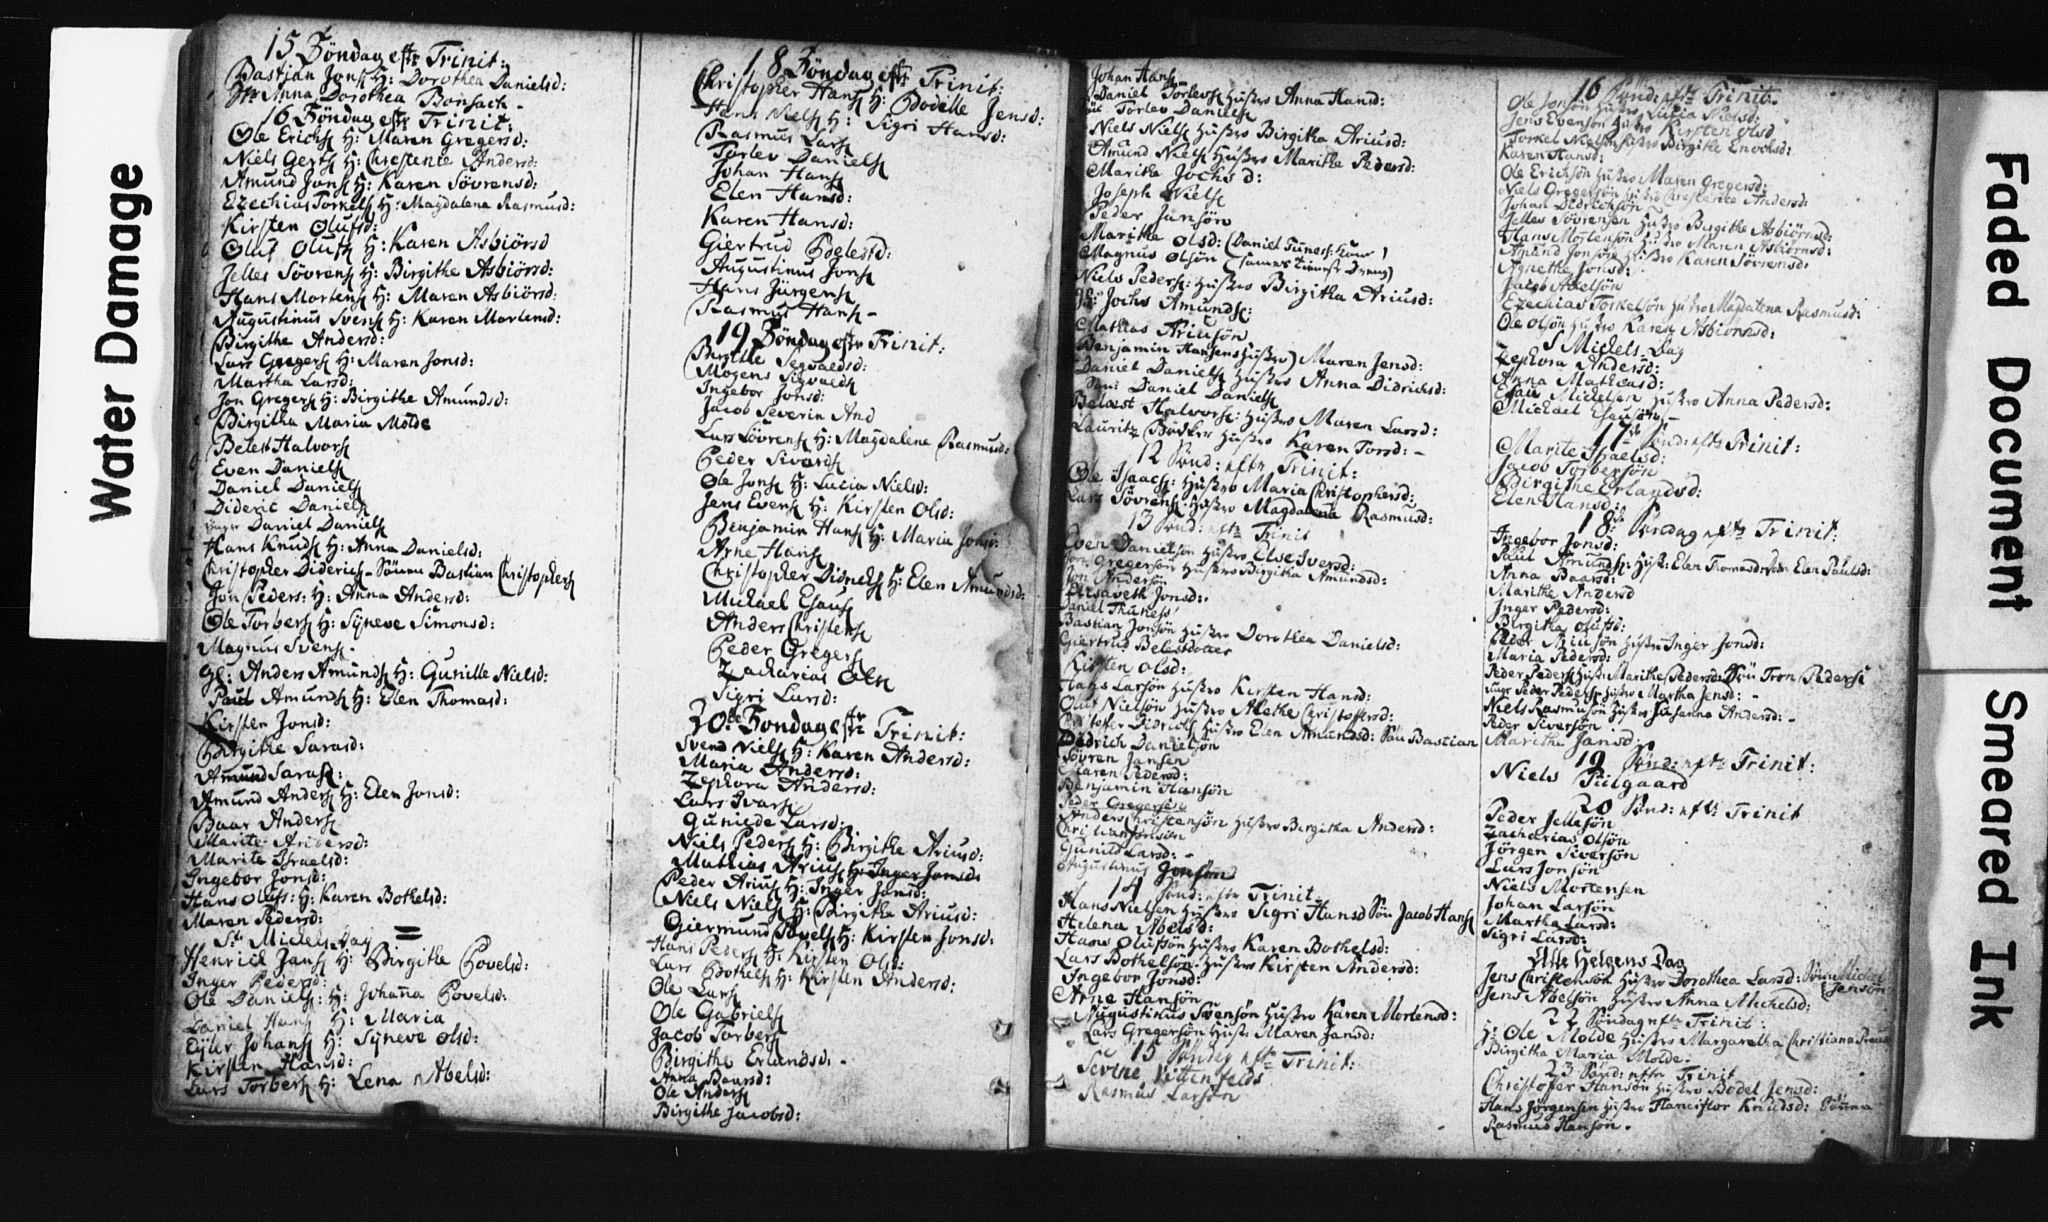 Water Damage
15 Söndag eftr Trinit:
Bastian Jons H: Dorothea Danielsd:
Anna Dorothea Bonsach -
16 Söndag eftr Trinit:
Ole Erichs H: Maren Gregersd:
Niels Gers H: Chrestenie Andersd:
Amund Jons H: Karen Sövrensd:
Ezechias Torkels H: Magdalena Rasmusd:
Kirsten Olufsd:
Oluf Olufs H: Karen Asbiörsd
Jelles Sövrens H: Birgithe Asbiörsd:
Hans Mortens H: Maren Asbiörsd:
Augustinus Svens H: Karen Mortensd:
Birgithe Andersd:
Lars Gregers H: Maren Jonsd:
Martha Larsd:
Jon Gregers H: Birgithe Amundsd:
Birgitha Maria Molde
Belest Halvors
Even Daniels
Daniel Daniels
Dideric Daniels
Daniel Daniels
Hans Knuds H: Anna Danielsd:
Christopher Diderichs Sönnn Bastian Christophers
Jon Peders: H: Anna Andersd:
Ole Torbers H: Syneve Simonsd:
Magnus Svens -
gl: Anders Amunds H: Gunille Nielsd:
Paul Amunds H: Elen Thomasd:
Kirsten Jonsd:
Birgithe Sarasd:
Amund Saras:
Amund Anders H: Elen Jonsd:
Baar Anders
Marite Andersd:
Marite Israelsd:
Ingebor Jonsd:
Hans Olufs: H: Karen Bothelsd:
Maren Pedersd:
St: Mickels Dag =
Henrick Jans H: Birgithe Povelsd:
Inger Pedersd:
Ole Daniels: H: Johana Povelsd:
Daniel Hans H: Maria
Eyler Johans H: Syneve Olsd:
Kirsten Hansd:
Lars Torbers H: Lena Abelsd:
18 Söndag eftr Trinit:
Christopher Hans H: Bodelle Jensd:
Hans Niels H: Sigri Hansd:
Rasmus Lars
Torlev Daniels
Johan Hans
Elen Hansd:
Karen Hansd:
Giertrud Boelestd:
Augustinus Jons
Hans Jürgens
Rasmus Hans -
19 Söndag eftr Trinit:
Birgitte Segvaldsd:
Mogens Sigvalds
Ingebor Jonsd:
Jacob Severin And
Lars Sövrens H: Magdalena Rasmusd:
Peder Sivards
Ole Jons H: Lucia Nielsd:
Jens Evens H: Kirsten Olsd:
Benjamin Hans H: Maria Jonsd:
Arne Hans
Christopher Didrichs H: Elen Amundsd:
Mickael Esaus
Anders Christens
Peder Gregers
Zacharias Ols
Sigri Larsd:
20de Söndag eftr Trinit:
Svend Niels H: Karen Andersd:
Maria Andersd:
Zephora Andersd:
Lars Ivars
Gunilde Larsd:
Niels Peders H: Birgithe Ariusd:
Mathias Arius H: Inger Jonsd:
Peder Arius H: Inger Jonsd:
Niels Niels H: Birgitha Ariusd:
Giermund Povels H: Kirsten Jonsd:
Hans Peders H: Kirsten Olsd:
Lars Bothels H: Kirsten Andersd:
Ole Lars
Ole Gabriels
Jacob Torbers
Birgithe Erlandsd: -
Anna Baarsd:
Ole Anders
Birgithe Jacobsd:
Johan Hans
Daniel Torlevs Hustro Anna Hansd:
Torlev Daniels
Niels Niels Hustro Birgitha Ariusd:
Amund Niels Hustro Marithe Pedersd:
Marithe Jochs d:
Joseph Niels
Peder Jansön
Marithe Olsd:
Magnus Olsön
Niels Peders: Hustro Birgitha Ariusd:
gl: Jochs Amunds:
Mathias Ariusön
Benjamin Hansens Hustro) Maren Jensd:
Daniel Daniels Hustro Anna Didrichsd:
Sön: Daniel Daniels
Belaest Halvors: Hustro Maren Larsd:
Lauritz Bödker Hustro Karen Torsd: -
12 Sönd: eftr Trinit:
Ole Isaachs: Hustro Maria Christophersd:
Lars Sövrens: Hustro Magdalena Rasmusd:
13 Sönd: eftr Trinit
Even Danielsön Hustro Else Iversd:
Jon: Gregersön Hustro Birgitha Amundsd:
Jon Andersön
Elisaveth Jonsd:
Daniel Thuness
Bastian Jonsön Hustro Dorothea Danielsd:
Giertrud Belestdotter
Kirsten Olsd:
Hans Larsön Hustro Kirsten Hansd:
Oluf Nielsön Hustro Alethe Christoffersd:
Christofer Didrichs Hustro Elen Amundsd: Sön Bastian
Didrich Danielsön
Sövren Jansen
Maren Pedersd:
Benjamin Hansön
Peder Gregersön
Anders Christensön Hustro Bergitha Andersd:
Christian Jonsön
Gunild Larsd: -
Augustinus Jonsön
14 Sönd: eftr Trinit:
Hans Nielsen Hustro Sigri Hansd Sön Jacob Hans
Helena Abelsd:
Hans Olufsön Hustro Karen Bothelsd:
Lars Bothelsön: Hustro Kirsten Andersd:
Ingebor Jonsd:
Arne Hansön
Augustinus Svensön Hustro Karen Mortensd:
Lars Gregersön Hustr: Maren Jansd:
15 Söndag eftr Trinit:
Sevrine Vittenfelds
Rasmus Larsön
16 Sönd: eftr Trinit.
Ole Jonsön Hustro Lucia Nielsd:
Jens Evensön Hustro Kirsten Olsd
Torkel Nielsön Hustro Birgithe Enochsd:
Karen Hansd:
Ole Erichsön Hustro Maren Gregersd:
Niels Gregersön Hustro Chrestenke Andersd:
Johan Didrichsön
Jelles Sövrensen Hustro Birgithe Asbiörnsd:
Hans Mortensön Hustro Maren Asbiörnsd:
Amund Jonsön Hustro Karen Sövrensd:
Agnethe Jonsd:
Jacob Axelsön
Ezechias Torkelsön Hustro Magdalena Rasmusd:
Ole Olsön Hustro Karen Asbiörnsd:
S Mickels Dag
Zephora Andersd:
Anna Mathiasd:
Esau Mickelsen Hustro Anna Pedersd:
Mickael Esausön -
17de Sönd: eftr Trinit:
Marite Israelsd:
Jacob Torbersön
Birgithe Erlandsd:
Elen Hansd:
18de Söndag eftr Trinit:
Ingebor Jonsd:
Paul Amunds: Hust: Elen Thomasd: dtr Elen Paulsd:
Anna Baarsd:
Marithe Andersd
Inger Pedersd:
Birgitha Olufsd:
Peder Ariusön Hustru Inger Jonsd:
Maria Pedersd:
Peder Peders Hust: Marithe Pedersd: Sön Tron Pedersn
unge Peder Peders Hustro Martha Jensd: -
Niels Rasmusön Hustro Johanna Andersd: -
Peder Siversön
Marithe Jansd:
19 Sönd: eftr Trinit:
Niels Piilgaard
20 Sönd: eftr Trinit
Peder Jellesön
Zacharias Olsön
Jörgen Siversön
Lars Jonsön
Niels Mortensen
Johan Larsön
Martha Larsd:
Sigri Larsd:
Alle Helgens Dag
Jens Christensön Hustro Dorothea Larsd: Sönn Mickel Jensön
Jens Abelsön Hustro Anna Michelsd:
22 Söndag eftr Trinit:
Hr Ole Molde Hustro Margaretha Christiana
Birgitha Maria Molde.
23 Sönd: eftr Trinit
Christofer Hansön Hustro Bodel Jensd:
Hans Jörgensen Hustro Knudsd: Sönn
Rasmus Hansön.
Faded Document
Smeared Ink